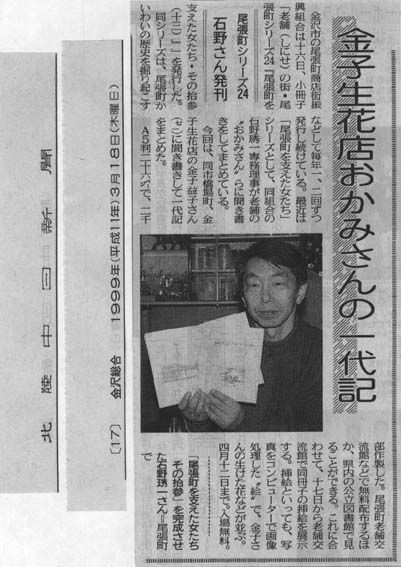 金子生花店おかみさんの一代記
尾張町シリーズ24
石野さん発刊
金沢市の尾張町商店街振
興組合は十六日、小冊子
「老舗(しにせ)の街・尾
張町シリーズ24『尾張町を
支えた女たち・その拾参
(十三)』」を発行した。
同シリーズは、尾張町か
いわいの歴史を掘り起こす
などして毎年一、二回ずつ
発行し続けている。最近は
「尾張町を支えた女たち」
シリーズとして、同組合の
石野琇一専務理事が老舗の
“おかみさん”らに聞き書
きをしてまとめている。
今回は、同市橋場町、金
子生花店の金子益子さん
に聞き書きして一代記
をまとめた。
A5判二十六㌻で、二千
部作製した。尾張町老舗交
流館などで無料配布するほ
か、県内の公立図書館で見
ることができる。これに合
わせて、十七日から老舗交
流館で同冊子の挿絵を展示
する。挿絵といっても、写
真をコンピューターで画像
処理した“絵”で、金子さ
んの生けた花などが並ぶ。
四月十二日まで。入場無料。
「尾張町を支えた女たち
その拾参」を完成させ
た石野琇一さん＝尾張町
で
〔17〕 金沢総合 1999年(平成11年)3月18日(木曜日)
北陸中日新聞